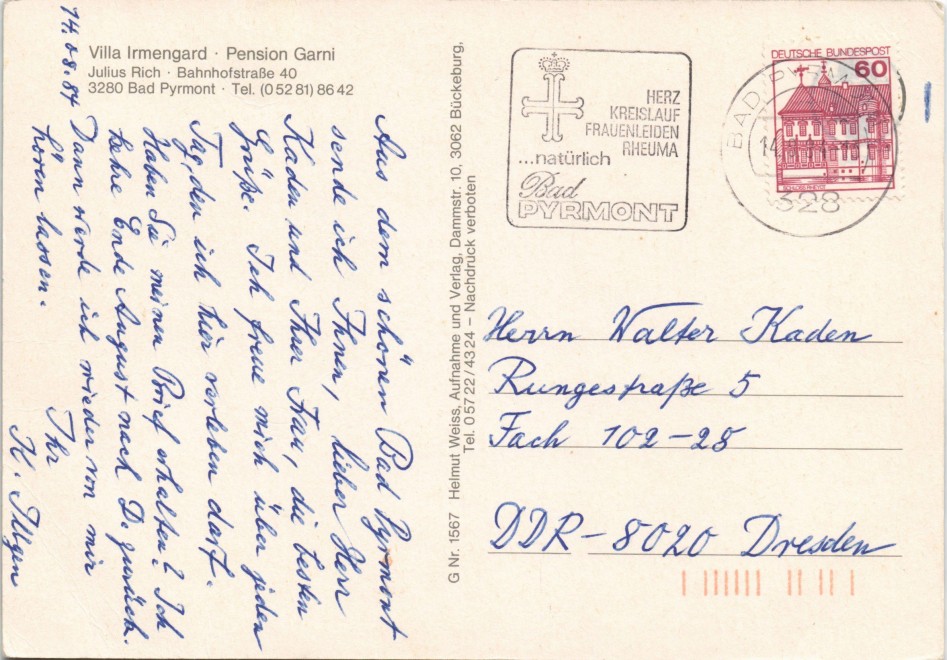 Villa Irmengard · Pension Garni
Julius Rich · Bahnhofstraße 40
3280 Bad Pyrmont · Tel. (0 52 81) 86 42
14.08.84
Aus dem schönen Bad Pyrmont
sende ich Ihnen, lieber Herr
Kaden und Ihrer Frau, die besten
Grüße. Ich freue mich über jeden
Tag, den ich hier verleben darf.
Haben Sie meinen Brief erhalten? Ich
kehre Ende August nach D. zurück.
Dann werde ich wieder von mir
hören lassen.
Ihr
K. Illgen
G Nr. 1567 Helmut Weiss, Aufnahme und Verlag, Dammstr. 10, 3062 Bückeburg,
Tel. 0 57 22 / 43 24 – Nachdruck verboten
HERZ
KREISLAUF
FRAUENLEIDEN
RHEUMA
...natürlich
Bad
PYRMONT
BAD PYRMONT
328
DEUTSCHE BUNDESPOST
60
SCHLOSS RHEYDT
Herrn Walter Kaden
Rungestraße 5
Fach 102-25
DDR-8020 Dresden